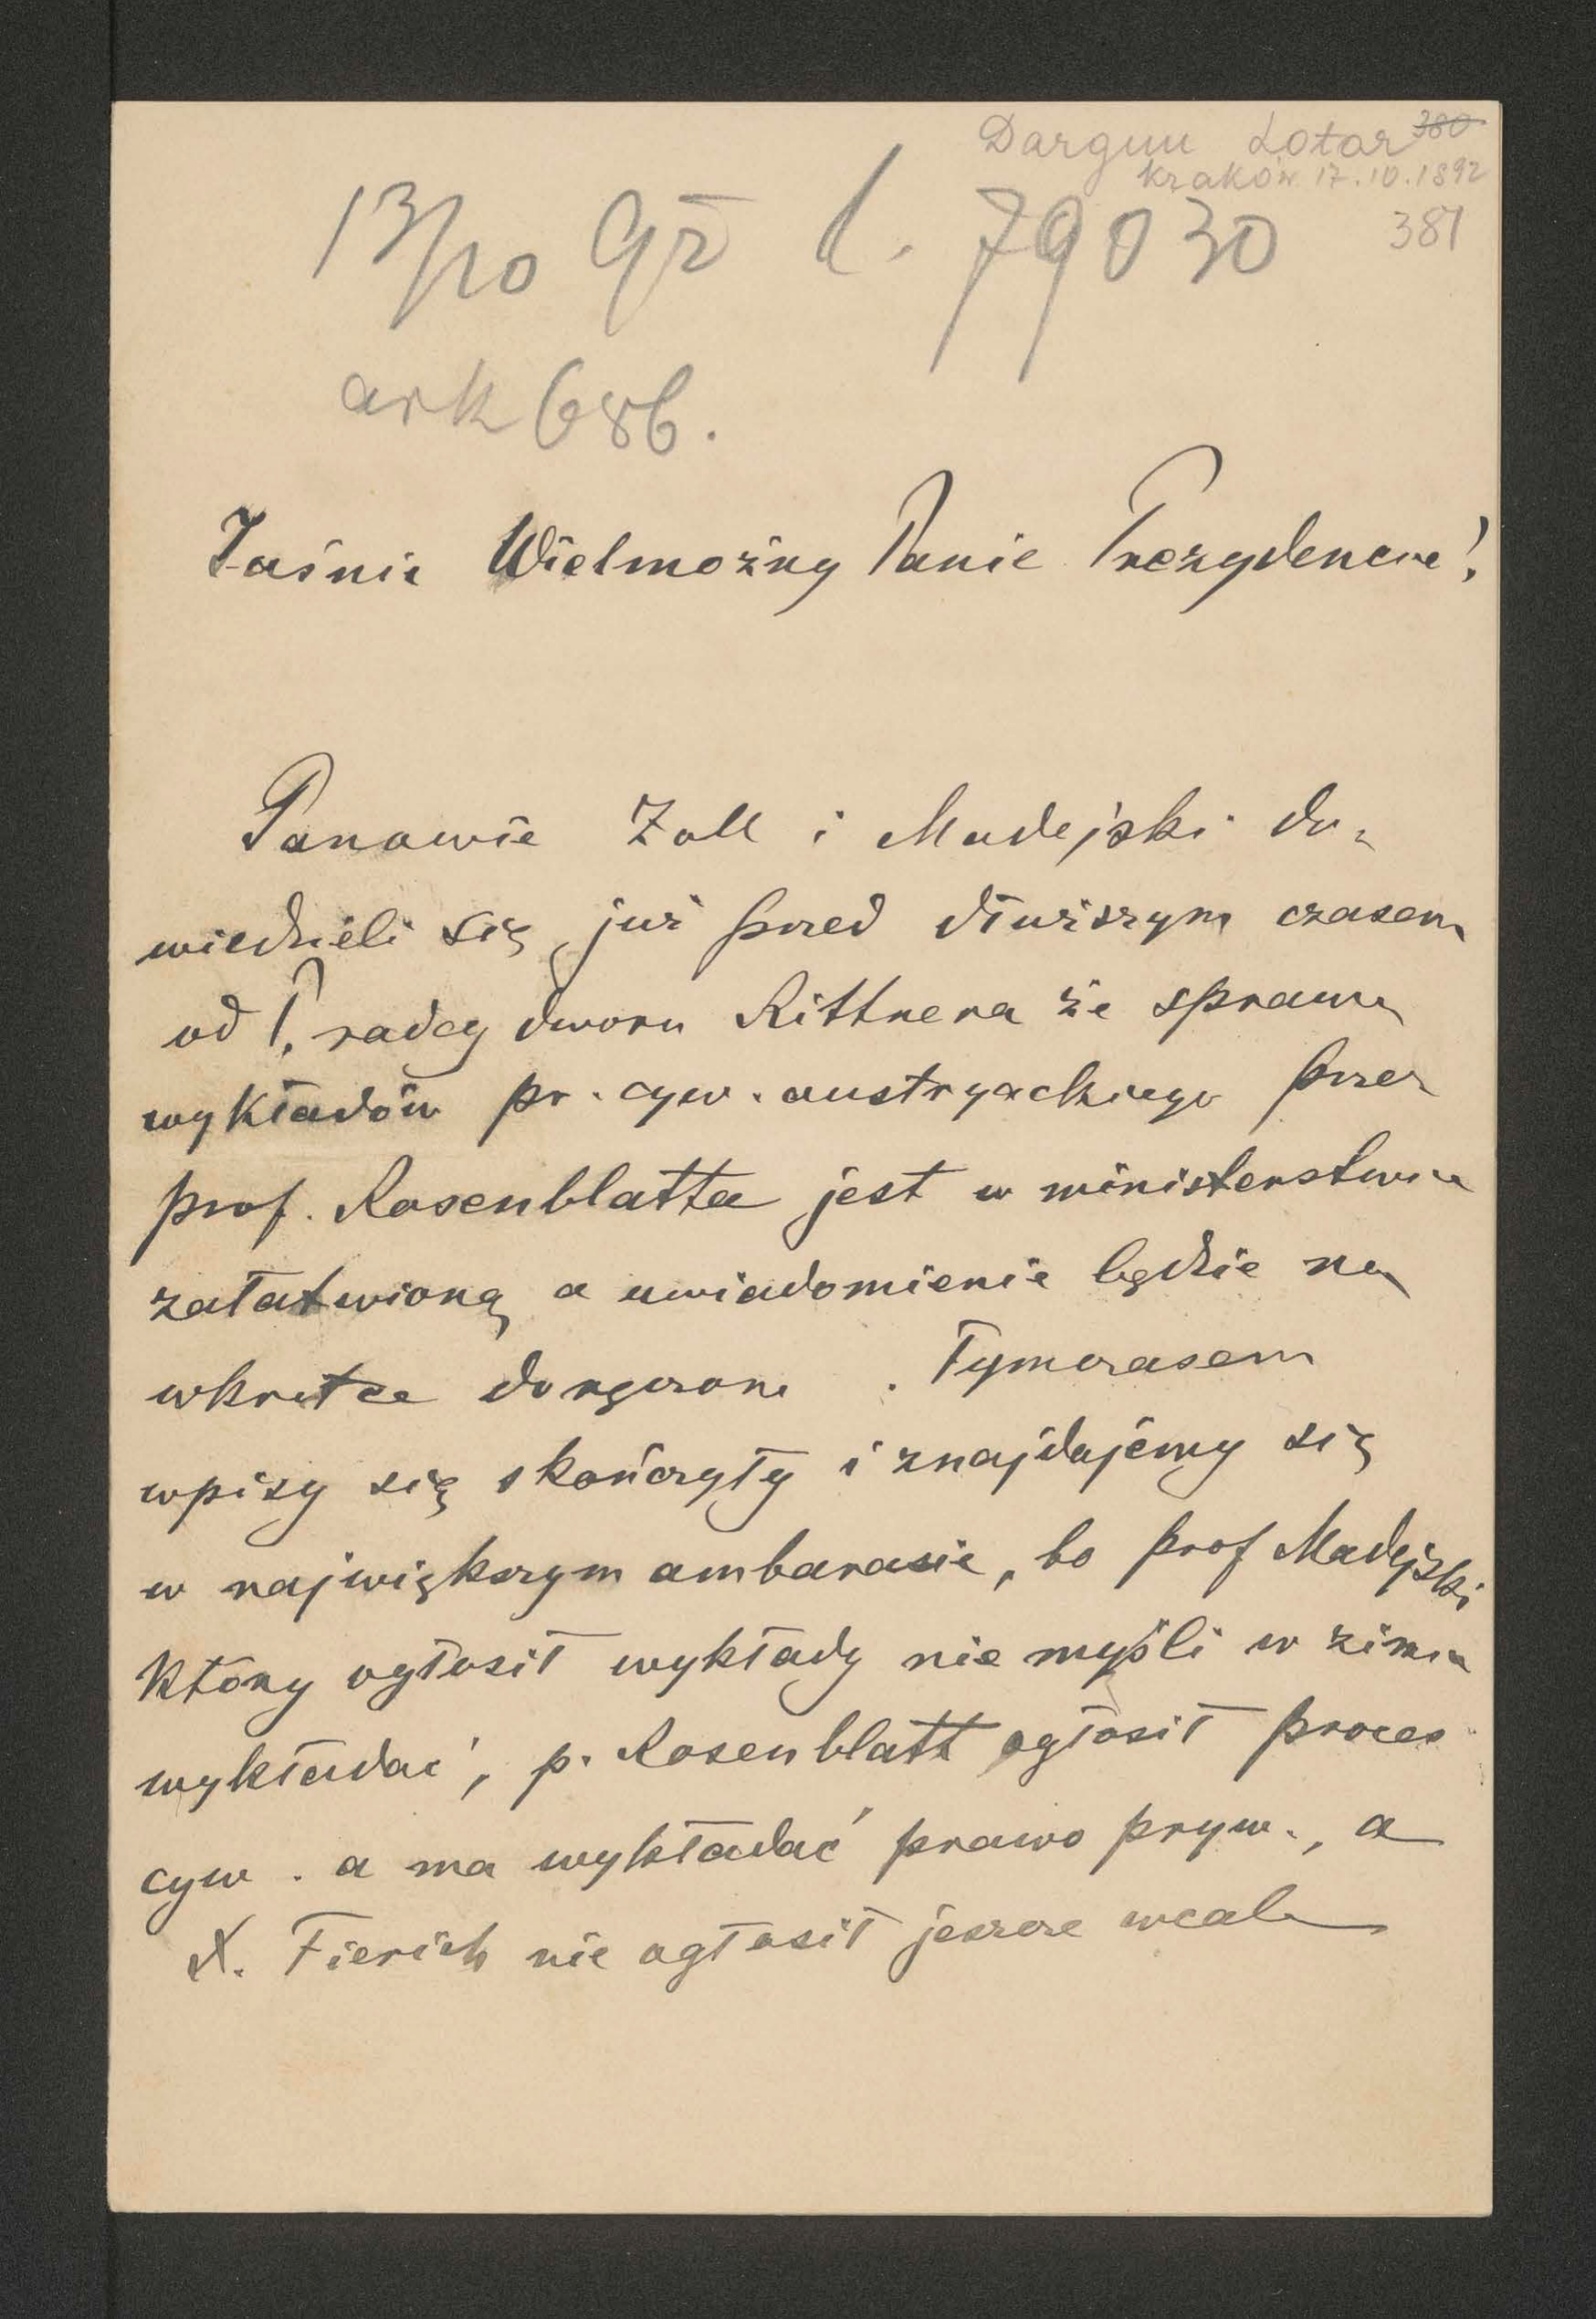 Dargun Lotar 380
Kraków 17.10.1892
381
13/10 92 l. 79030
ark 686.
Jaśnie Wielmożny Panie Prezydencie!
Panowie Zoll i Madejski do-
wiedzieli się już przed dłuższym czasem
od P. radcy dworu Rittnera że sprawa
wykładów pr. cyw. austryackiego przez
prof. Rosenblatta jest w ministerstwie
załatwioną a uwiadomienie będzie na
wkrótce doręczone. Tymczasem
wpisy się skończyły i znajdujemy się
w największym ambarasie, bo prof Madejski
który ogłosił wykłady nie myśli w zimie
wykładać, p. Rosenblatt ogłosił proces
cyw. a ma wykładać prawo pryw., a
X. Fierich nie ogłosił jeszcze wcale